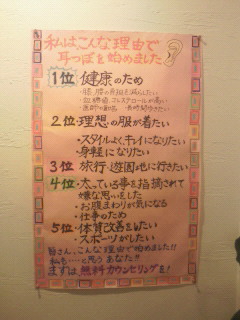 私は、こんな理由で
耳つぼを始めました
1位 健康のため
・膝、腰の負担を減らしたい
・血糖値、コレステロールが高い
2位 理想の服が着たい
・スタイルよく、キレイになりたい
・身軽になりたい
3位 旅行・遊園地に行きたい
4位・太っている事を指摘されて
嫌な思いをした
・お腹まわりが気になる
・仕事のため
5位・体質改善をしたい
・スポーツがしたい
皆さん、こんな理由で始めました!!
私も…と思うあなた!!
まずは無料カウンセリングを!